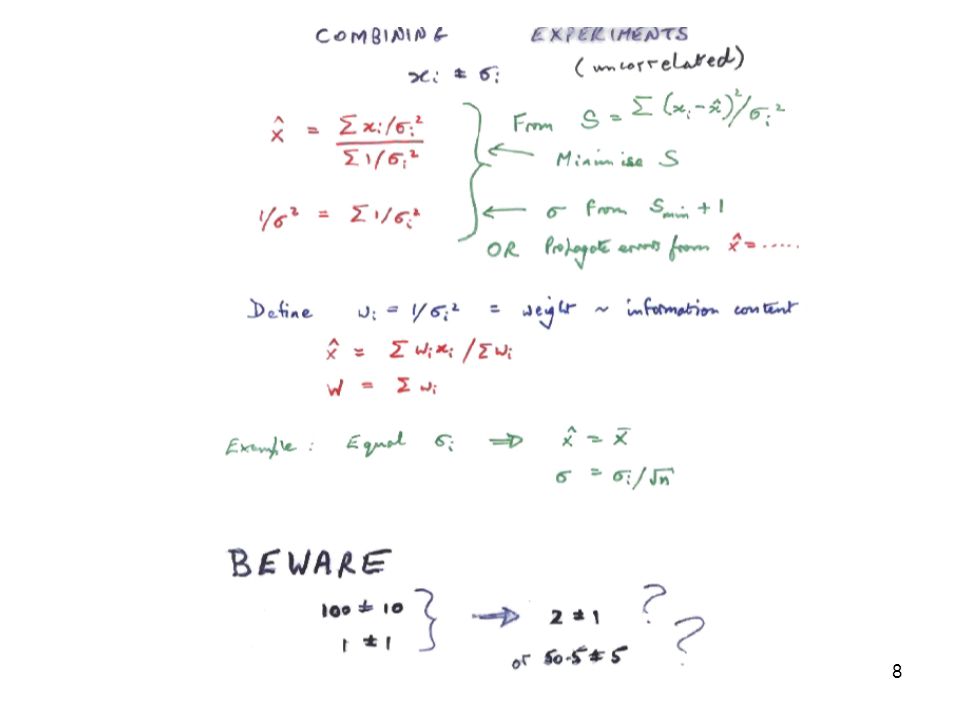 COMBINING EXPERIMENTS
(uncorrelated)
xᵢ ± σᵢ
x̂ = Σ xᵢ/σᵢ² / Σ 1/σᵢ²
From S = Σ (xᵢ - x̂)²/σᵢ²
← Minimise S
1/σ² = Σ 1/σᵢ²
← σ from Sₘᵢₙ + 1
OR Propagate errors from x̂ = .....
Define wᵢ = 1/σᵢ² = weight ~ information content
x̂ = Σ wᵢxᵢ / Σwᵢ
W = Σ wᵢ
Example : Equal σᵢ ⇒ x̂ = x̄
σ = σᵢ/√n
BEWARE
100 ± 10
1 ± 1
→ 2 ± 1 ?
or 50.5 ± 5 ?
8